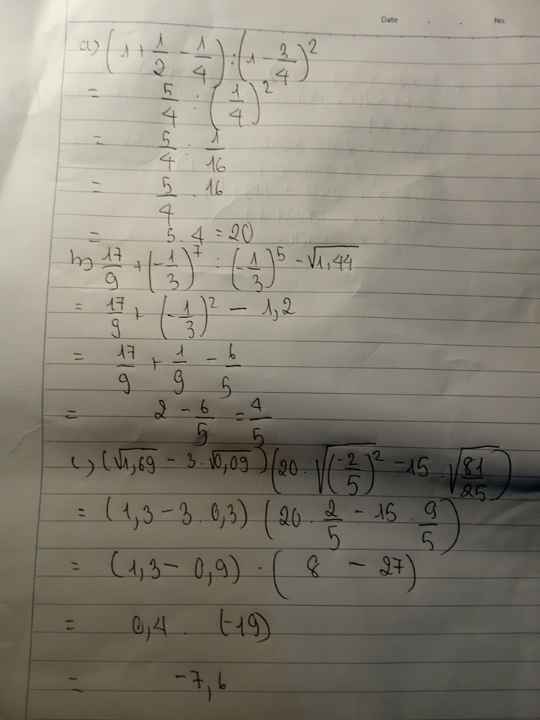 Date . . No.
a) (1 + 1/2 - 1/4) : (1 - 3/4)²
= 5/4 : (1/4)²
= 5/4 : 1/16
= 5/4 . 16
= 5 . 4 = 20
b) 17/9 + (-1/3)⁷ : (-1/3)⁵ - √1,44
= 17/9 + (-1/3)² - 1,2
= 17/9 + 1/9 - 6/5
= 2 - 6/5 = 4/5
c) (√1,69 - 3 . √0,09) (20 . √(-2/5)² - 15 . √81/25)
= (1,3 - 3 . 0,3) (20 . 2/5 - 15 . 9/5)
= (1,3 - 0,9) . (8 - 27)
= 0,4 . (-19)
= -7,6